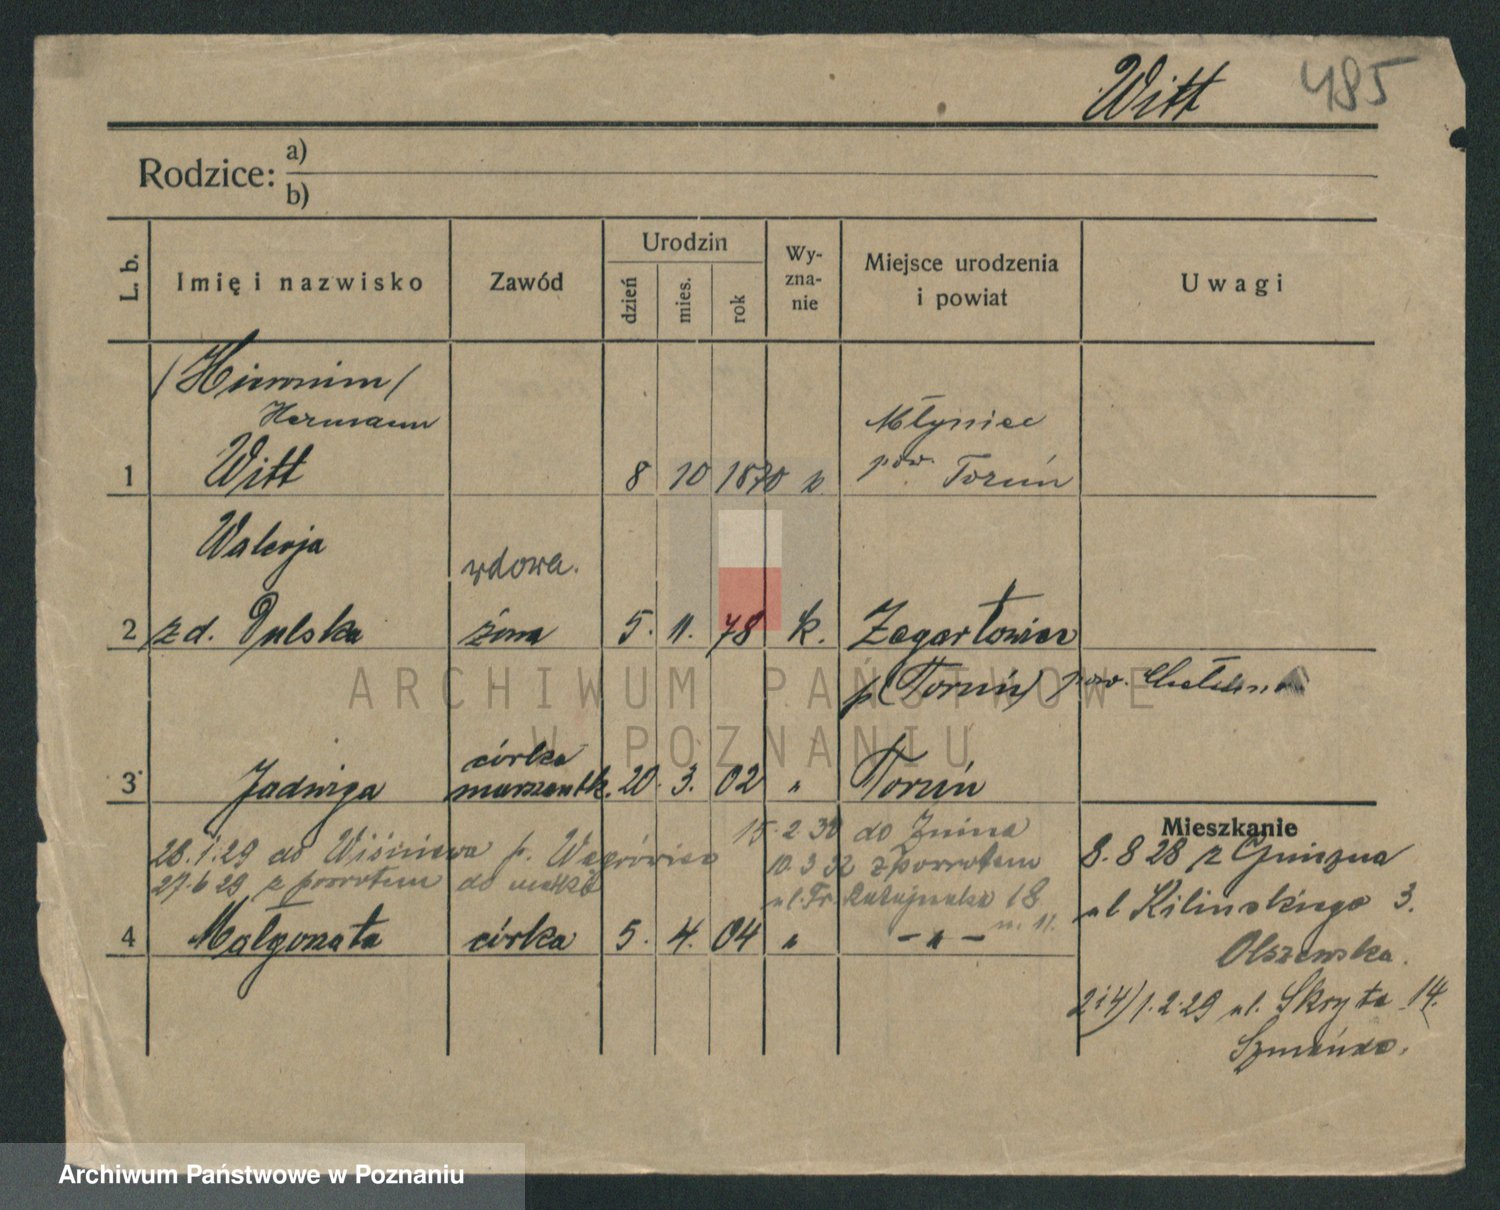 Witt 485
Rodzice: a)
b)
L. b. Imię i nazwisko Zawód Urodzin dzień mies. rok Wy-zna-nie Miejsce urodzenia i powiat Uwagi
/Hieronim/
Hermann Młyniec
1 Witt 8 10 1870 pow. Toruń
Walerja wdowa.
2 z d. Dulska żona 5. 11. 78 k. Zegartowice
p (Toruń) pow. Chełmno
ARCHIWUM PAŃSTWOWE
W POZNANIU
córka
3 Jadwiga 20. 3. 02 " Toruń
15.2.30 do Żnina Mieszkanie
28.1.29 do Wiśniewa p. Wągrówiec 10.3.32 z powrotem 8.8 28 z Gniezna
27.6 29 z powrotem do matki ul. Fr. Ratajczaka 18 ul Kilińskiego 3.
4 Małgorzata córka 5. 4. 04 " - " - m. 11.
Olszewska.
2 i 4) 1.2.29 ul. Skryta 14.
Archiwum Państwowe w Poznaniu